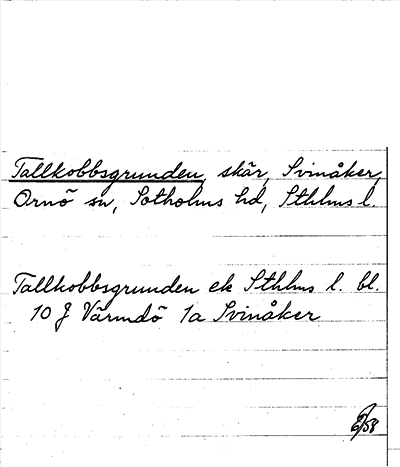 Tallkobbsgrunden, skär, Svinåker,
Ornö sn, Sotholms hd, Sthlms l.
Tallkobbsgrunden ek Sthlms l. bl.
10 J Värmdö 1a Svinåker